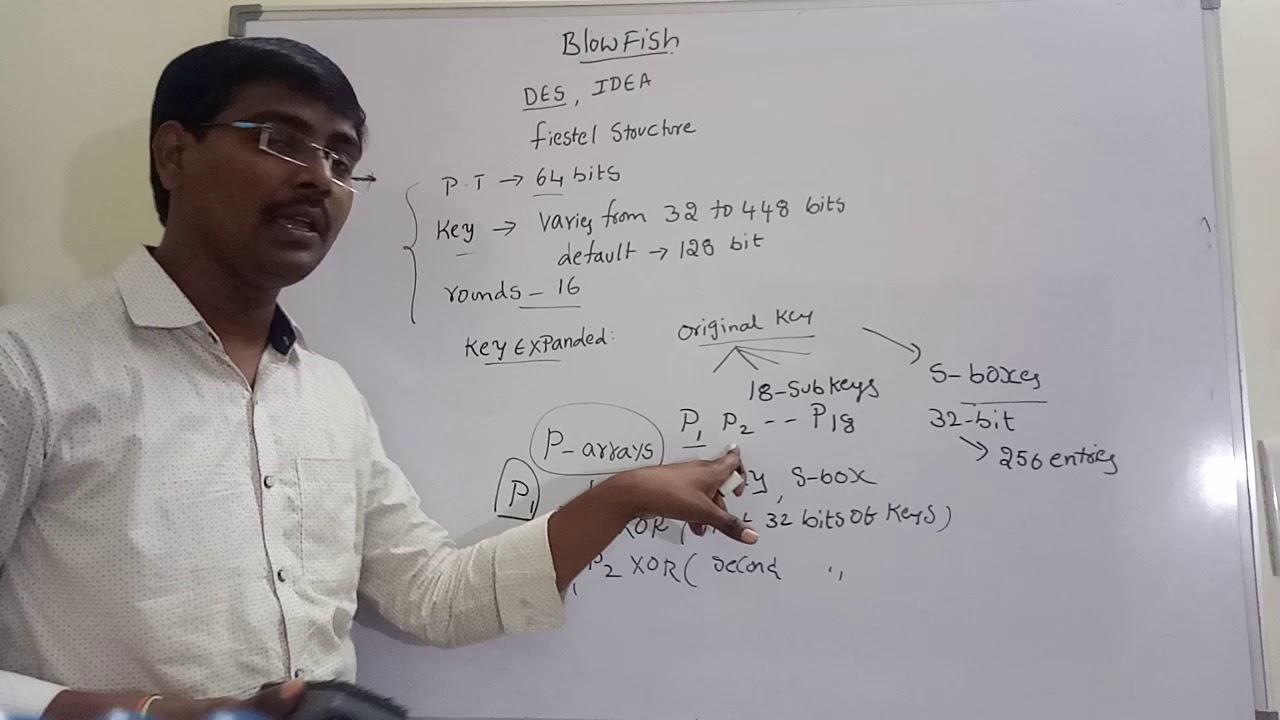 BlowFish
DES, IDEA
fiestel Structure
P.T → 64 bits
Key → Varies from 32 to 448 bits
default → 128 bit
rounds - 16
Key Expanded:
original Key
18-Subkeys
P1 P2 -- P18
S-boxes
32-bit
256 entries
P-arrays
P1
S-box
XOR ( 32 bits of keys)
P2 XOR ( second "